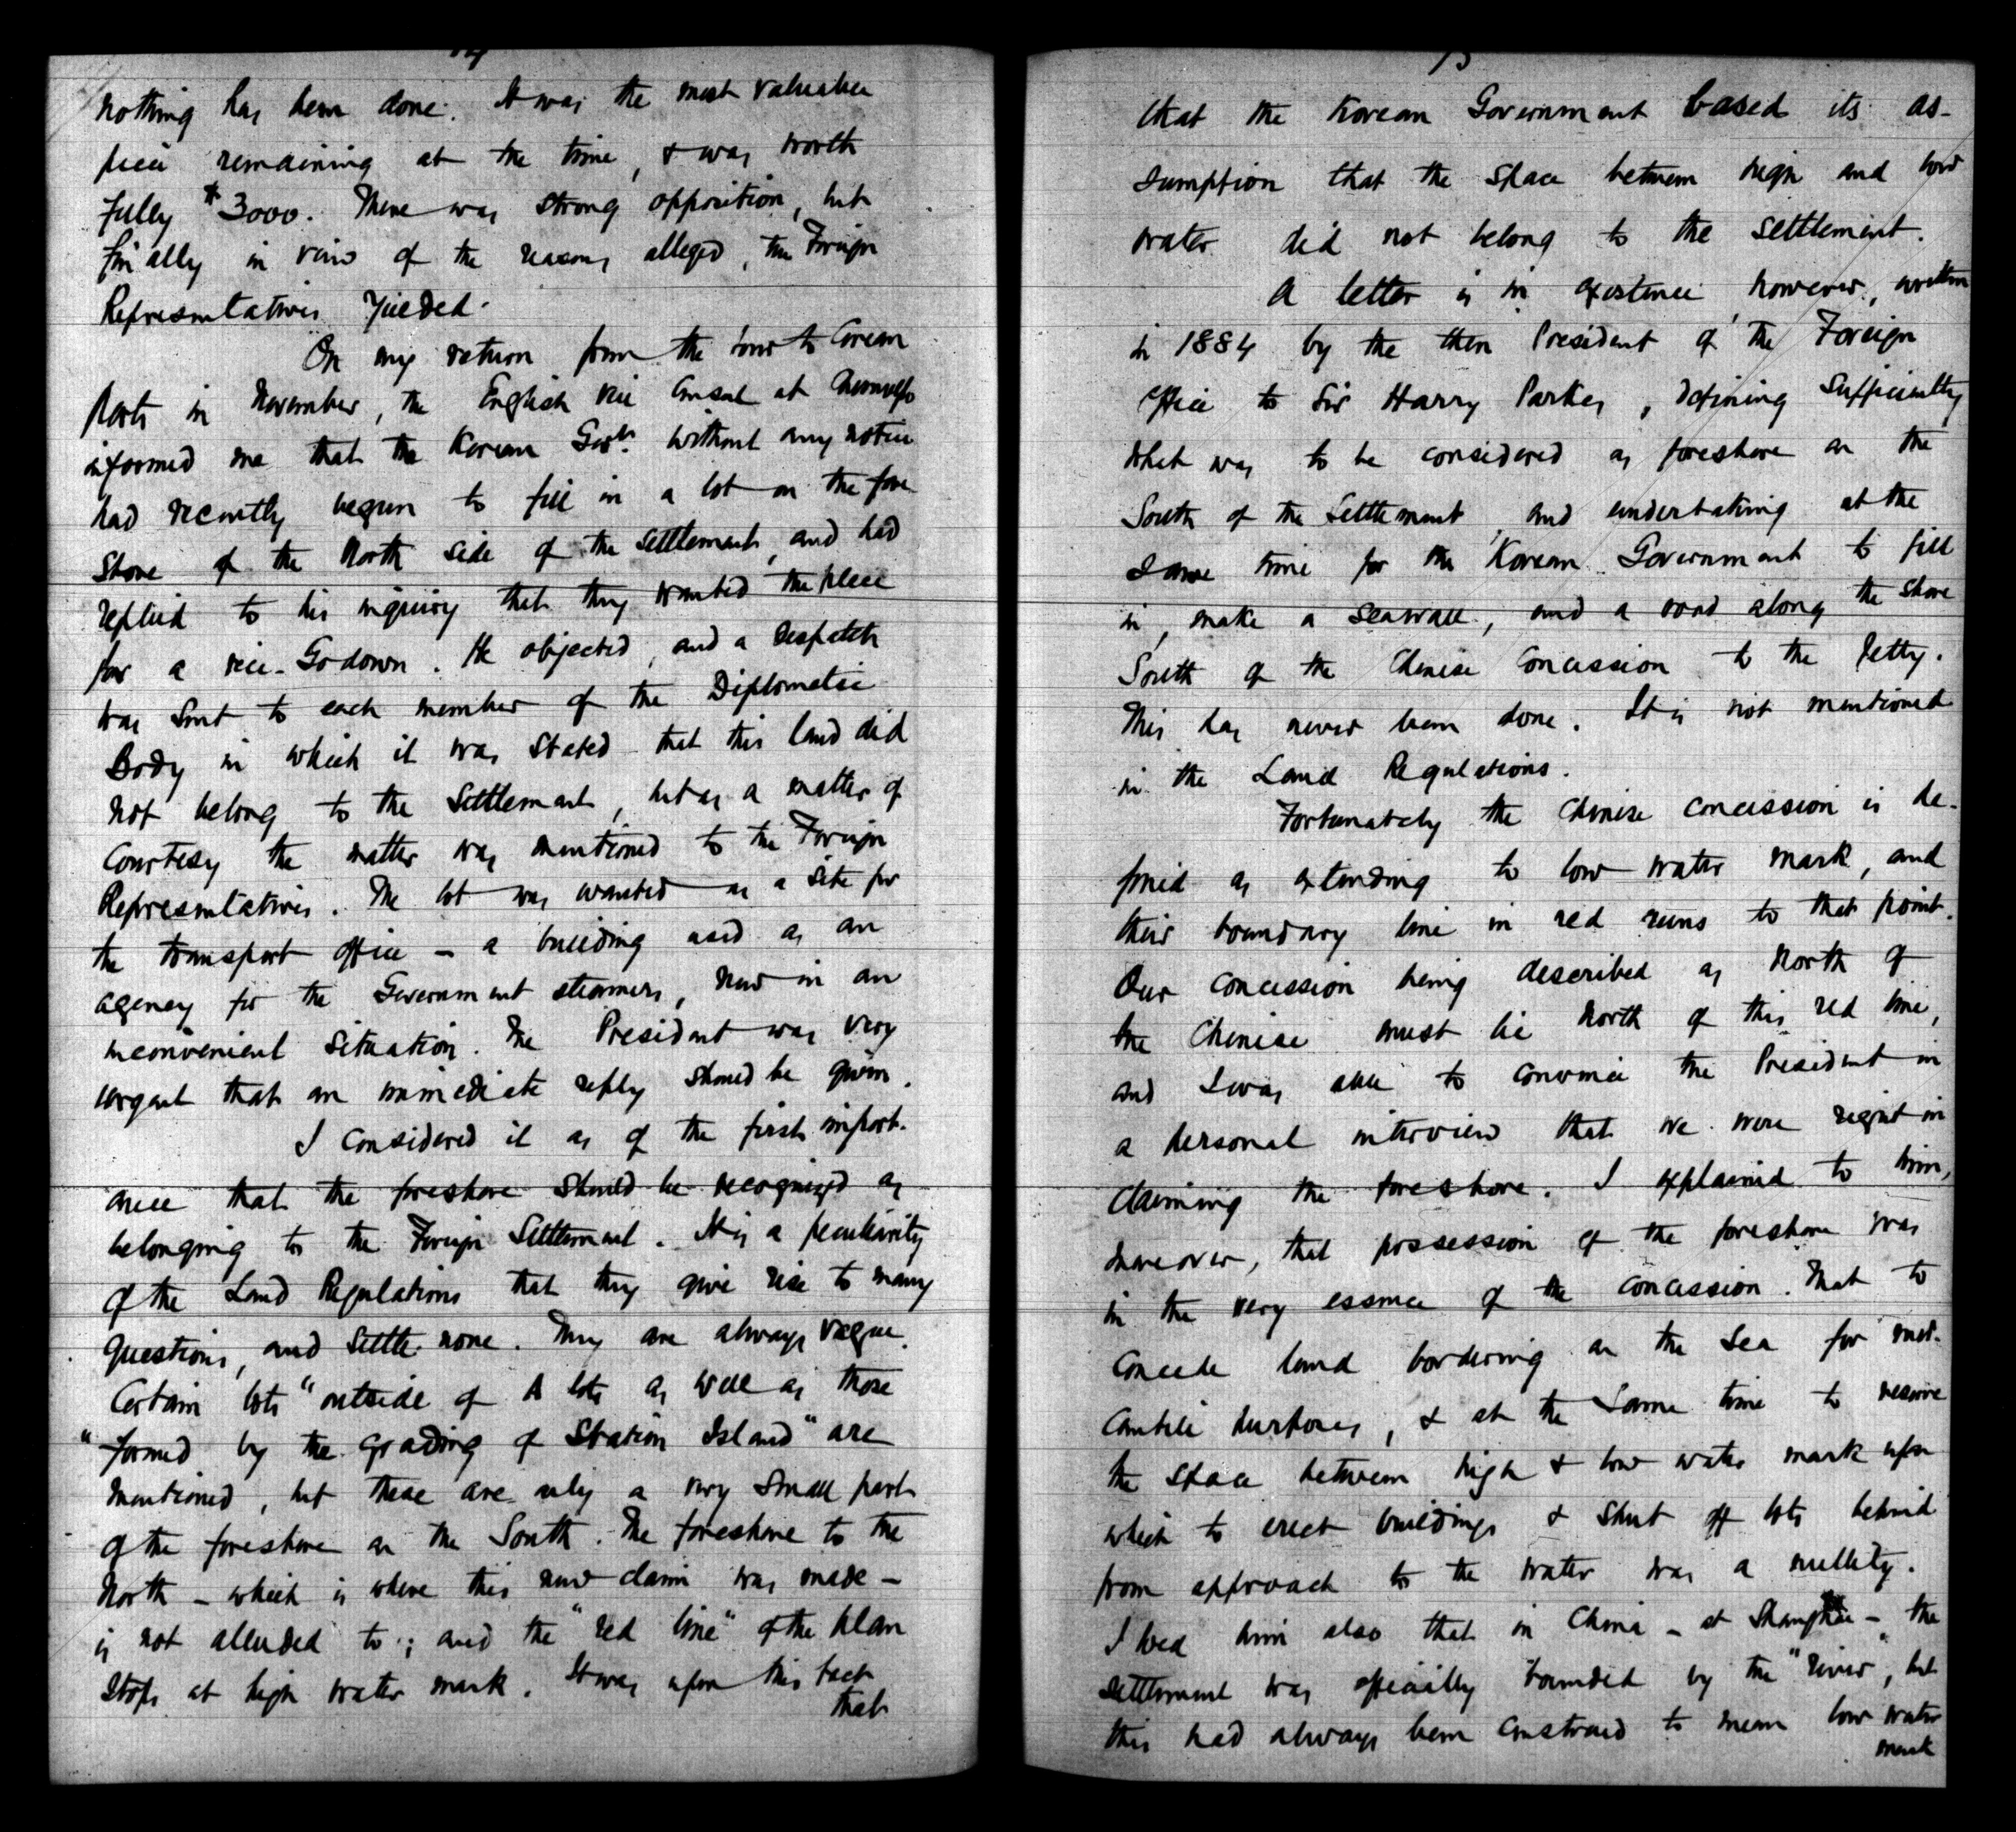 14
nothing has been done. It was the most valuable
piece remaining at the time, & was worth
fully $3000. There was strong opposition, but
finally in view of the reasons alleged, the Foreign
Representatives yielded.
On my return from the tour to Corean
Ports in November, the English Vice Consul at Chemulpo
informed me that the Korean Govt. without any notice
had recently begun to fill in a lot on the fore
shore of the North side of the settlement, and had
replied to his inquiry that they wanted the place
for a rice-Godown. He objected, and a despatch
was sent to each member of the Diplomatic
Body in which it was stated that this land did
not belong to the Settlement, but as a matter of
courtesy the matter was mentioned to the Foreign
Representatives. The lot was wanted as a site for
the transport office – a building used as an
agency for the Government steamers, now in an
inconvenient situation. The President was very
urgent that an immediate reply should be given.
I considered it as of the first import-
ance that the foreshore should be recognized as
belonging to the Foreign Settlement. It is a peculiarity
of the Land Regulations that they give rise to many
questions, and settle none. They are always vague.
Certain lots "outside of A lots as well as those
"formed by the grading of Station Island" are
mentioned, but these are only a very small part
of the foreshore on the South. The foreshore to the
North – which is where this new claim was made –
is not alluded to; and the "red line" of the plan
stops at high water mark. It was upon this fact
that
15
that the Korean Government based its as-
sumption that the space between high and low
water did not belong to the settlement.
A letter is in existence however, written
in 1884 by the then President of the Foreign
Office to Sir Harry Parkes, defining sufficiently
what was to be considered as foreshore on the
South of the Settlement, and undertaking at the
same time for the Korean Government to fill
in, make a seawall, and a road along the shore
South of the Chinese Concession to the Jetty.
This has never been done. It is not mentioned
in the Land Regulations.
Fortunately the Chinese concession is de-
fined as extending to low water mark, and
their boundary line in red runs to that point.
Our concession being described as North of
the Chinese must lie North of this red line,
and I was able to convince the President in
a personal interview that we were right in
claiming the foreshore. I explained to him,
moreover, that possession of the foreshore was
in the very essence of the concession. That to
concede land bordering on the sea for mer-
cantile purposes, & at the same time to reserve
the space between high & low water mark upon
which to erect buildings & shut off lots behind
from approach to the water was a nullity.
I told him also that in China – at Shanghai – the
settlement was specially bounded by the "river", but
this had always been construed to mean low water
mark